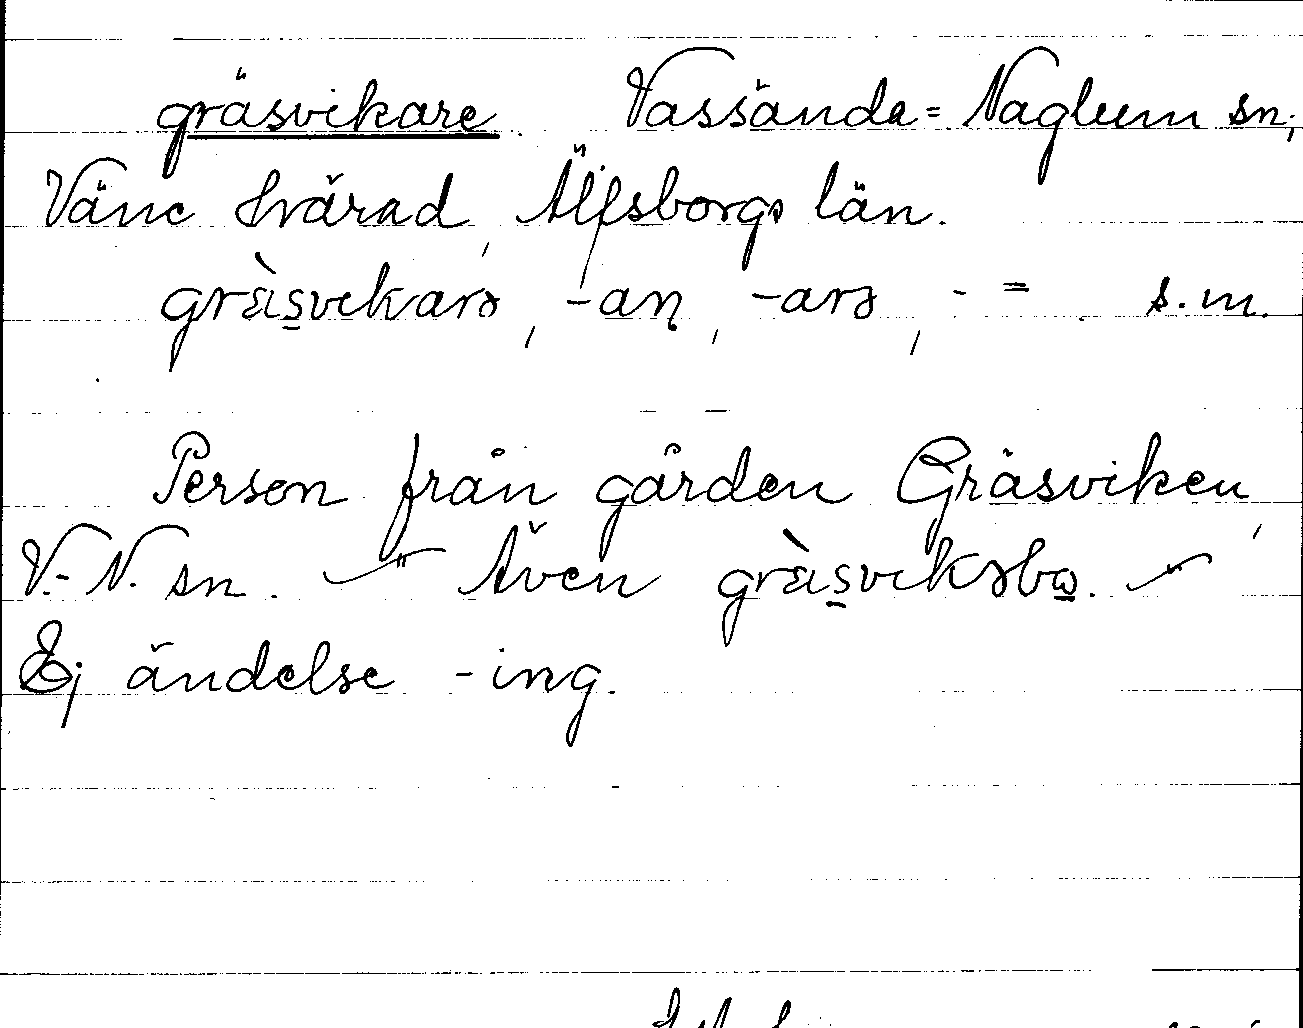 gräsvikare Vassända=Naglum sn;
Väne härad, Älfsborgs län.
gràsvikarə, -an, -arə, - = s.m.
Person från gården Gräsviken,
V.-N. sn. — " Även gràsviksbo. —"
Ej ändelse -ing.